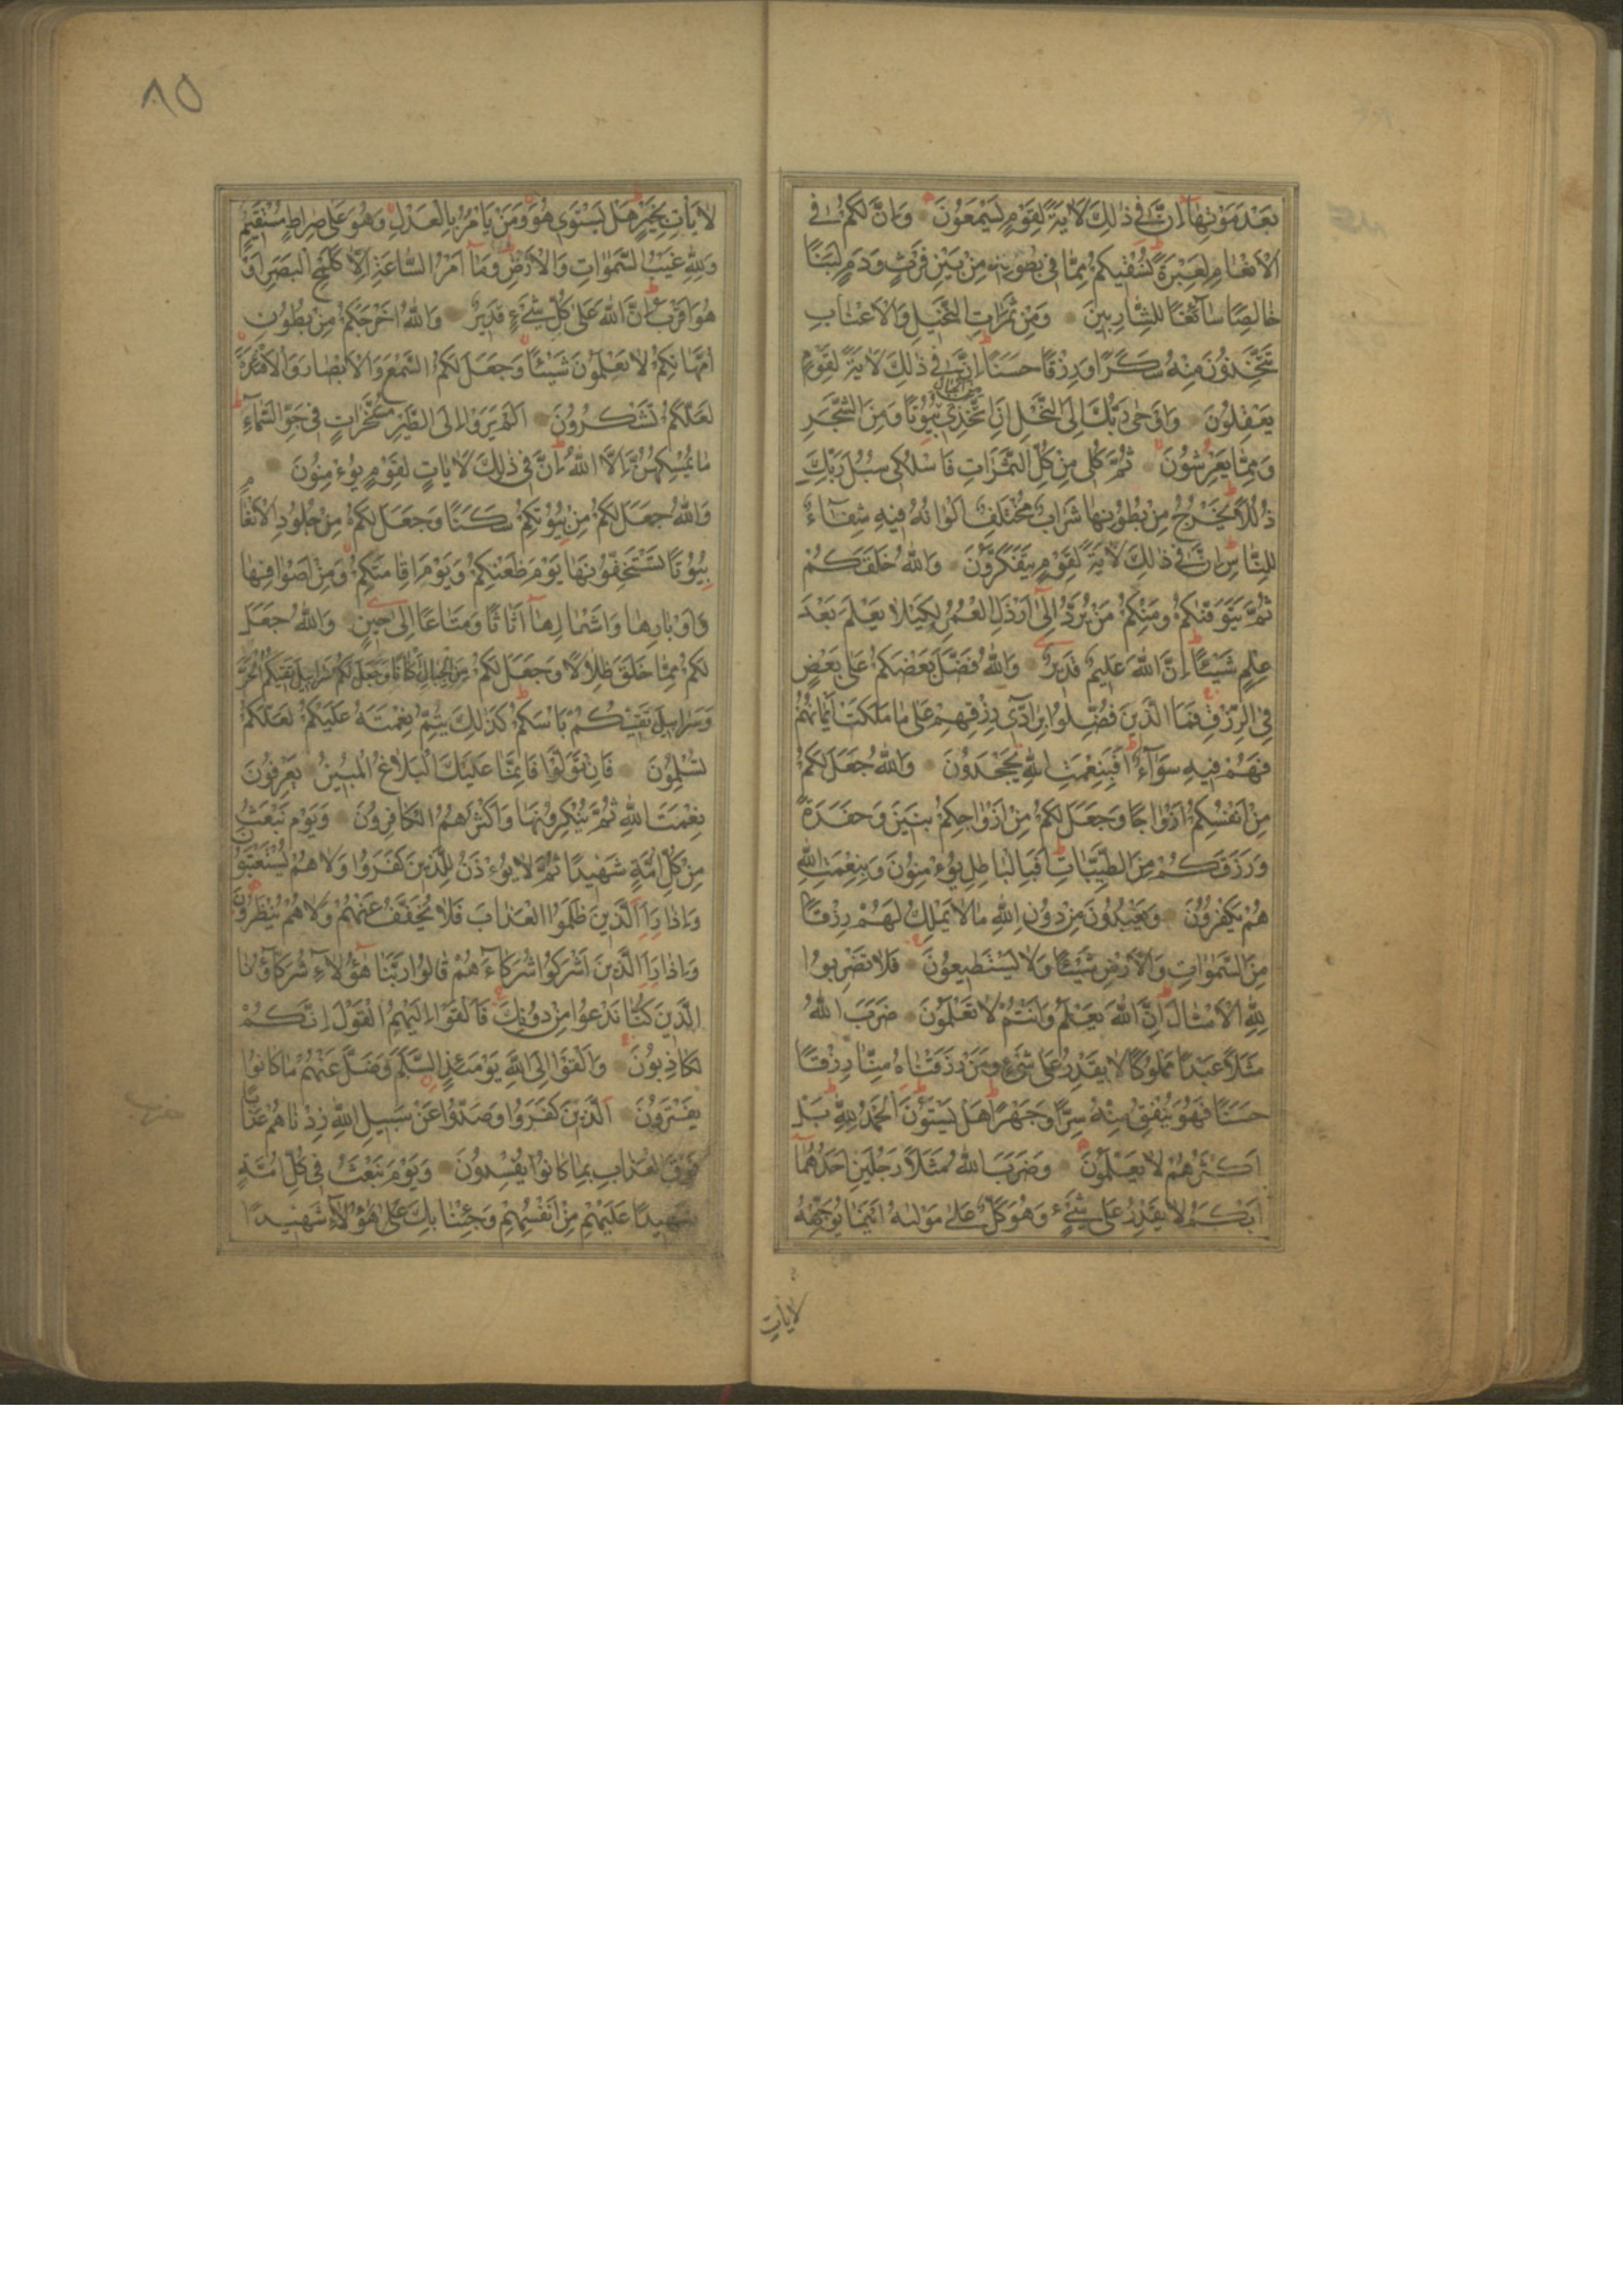 بَعْدَ مَوْتِهَا اِنَّ فِي ذٰلِكَ لَاٰيَةً لِقَوْمٍ يَسْمَعُونَ وَاِنَّ لَكُمْ فِي
الْاَنْعَامِ لَعِبْرَةً نُسْقِيكُمْ مِمَّا فِي بُطُونِهِ مِنْ بَيْنِ فَرْثٍ وَدَمٍ لَبَنًا
خَالِصًا سَائِغًا لِلشَّارِبِينَ وَمِنْ ثَمَرَاتِ النَّخِيلِ وَالْاَعْنَابِ
تَتَّخِذُونَ مِنْهُ سَكَرًا وَرِزْقًا حَسَنًا اِنَّ فِي ذٰلِكَ لَاٰيَةً لِقَوْمٍ
يَعْقِلُونَ وَاَوْحٰى رَبُّكَ اِلَى النَّحْلِ اَنِ اتَّخِذِي مِنَ الْجِبَالِ بُيُوتًا وَمِنَ الشَّجَرِ
وَمِمَّا يَعْرِشُونَ ثُمَّ كُلِي مِنْ كُلِّ الثَّمَرَاتِ فَاسْلُكِي سُبُلَ رَبِّكِ
ذُلُلًا يَخْرُجُ مِنْ بُطُونِهَا شَرَابٌ مُخْتَلِفٌ اَلْوَانُهُ فِيهِ شِفَاءٌ
لِلنَّاسِ اِنَّ فِي ذٰلِكَ لَاٰيَةً لِقَوْمٍ يَتَفَكَّرُونَ وَاللّٰهُ خَلَقَكُمْ
ثُمَّ يَتَوَفّٰيكُمْ وَمِنْكُمْ مَنْ يُرَدُّ اِلٰى اَرْذَلِ الْعُمُرِ لِكَيْلَا يَعْلَمَ بَعْدَ
عِلْمٍ شَيْئًا اِنَّ اللّٰهَ عَلِيمٌ قَدِيرٌ وَاللّٰهُ فَضَّلَ بَعْضَكُمْ عَلٰى بَعْضٍ
فِي الرِّزْقِ فَمَا الَّذِينَ فُضِّلُوا بِرَادِّي رِزْقِهِمْ عَلٰى مَا مَلَكَتْ اَيْمَانُهُمْ
فَهُمْ فِيهِ سَوَاءٌ اَفَبِنِعْمَةِ اللّٰهِ يَجْحَدُونَ وَاللّٰهُ جَعَلَ لَكُمْ
مِنْ اَنْفُسِكُمْ اَزْوَاجًا وَجَعَلَ لَكُمْ مِنْ اَزْوَاجِكُمْ بَنِينَ وَحَفَدَةً
وَرَزَقَكُمْ مِنَ الطَّيِّبَاتِ اَفَبِالْبَاطِلِ يُؤْمِنُونَ وَبِنِعْمَتِ اللّٰهِ
هُمْ يَكْفُرُونَ وَيَعْبُدُونَ مِنْ دُونِ اللّٰهِ مَا لَا يَمْلِكُ لَهُمْ رِزْقًا
مِنَ السَّمٰوَاتِ وَالْاَرْضِ شَيْئًا وَلَا يَسْتَطِيعُونَ فَلَا تَضْرِبُوا
لِلّٰهِ الْاَمْثَالَ اِنَّ اللّٰهَ يَعْلَمُ وَاَنْتُمْ لَا تَعْلَمُونَ ضَرَبَ اللّٰهُ
مَثَلًا عَبْدًا مَمْلُوكًا لَا يَقْدِرُ عَلٰى شَيْءٍ وَمَنْ رَزَقْنَاهُ مِنَّا رِزْقًا
حَسَنًا فَهُوَ يُنْفِقُ مِنْهُ سِرًّا وَجَهْرًا هَلْ يَسْتَوُنَ اَلْحَمْدُ لِلّٰهِ بَلْ
اَكْثَرُهُمْ لَا يَعْلَمُونَ وَضَرَبَ اللّٰهُ مَثَلًا رَجُلَيْنِ اَحَدُهُمَا
اَبْكَمُ لَا يَقْدِرُ عَلٰى شَيْءٍ وَهُوَ كَلٌّ عَلٰى مَوْلٰيهُ اَيْنَمَا يُوَجِّهْهُ
لَا يَأْتِ
٨٥
لَا يَأْتِ بِخَيْرٍ هَلْ يَسْتَوِي هُوَ وَمَنْ يَأْمُرُ بِالْعَدْلِ وَهُوَ عَلٰى صِرَاطٍ مُسْتَقِيمٍ
وَلِلّٰهِ غَيْبُ السَّمٰوَاتِ وَالْاَرْضِ وَمَا اَمْرُ السَّاعَةِ اِلَّا كَلَمْحِ الْبَصَرِ اَوْ
هُوَ اَقْرَبُ اِنَّ اللّٰهَ عَلٰى كُلِّ شَيْءٍ قَدِيرٌ وَاللّٰهُ اَخْرَجَكُمْ مِنْ بُطُونِ
اُمَّهَاتِكُمْ لَا تَعْلَمُونَ شَيْئًا وَجَعَلَ لَكُمُ السَّمْعَ وَالْاَبْصَارَ وَالْاَفْئِدَةَ
لَعَلَّكُمْ تَشْكُرُونَ اَلَمْ يَرَوْا اِلَى الطَّيْرِ مُسَخَّرَاتٍ فِي جَوِّ السَّمَاءِ
مَا يُمْسِكُهُنَّ اِلَّا اللّٰهُ اِنَّ فِي ذٰلِكَ لَاٰيَاتٍ لِقَوْمٍ يُؤْمِنُونَ
وَاللّٰهُ جَعَلَ لَكُمْ مِنْ بُيُوتِكُمْ سَكَنًا وَجَعَلَ لَكُمْ مِنْ جُلُودِ الْاَنْعَامِ
بُيُوتًا تَسْتَخِفُّونَهَا يَوْمَ ظَعْنِكُمْ وَيَوْمَ اِقَامَتِكُمْ وَمِنْ اَصْوَافِهَا
وَاَوْبَارِهَا وَاَشْعَارِهَا اَثَاثًا وَمَتَاعًا اِلٰى حِينٍ وَاللّٰهُ جَعَلَ
لَكُمْ مِمَّا خَلَقَ ظِلَالًا وَجَعَلَ لَكُمْ مِنَ الْجِبَالِ اَكْنَانًا وَجَعَلَ لَكُمْ سَرَابِيلَ تَقِيكُمُ الْحَرَّ
وَسَرَابِيلَ تَقِيكُمْ بَأْسَكُمْ كَذٰلِكَ يُتِمُّ نِعْمَتَهُ عَلَيْكُمْ لَعَلَّكُمْ
تُسْلِمُونَ فَاِنْ تَوَلَّوْا فَاِنَّمَا عَلَيْكَ الْبَلَاغُ الْمُبِينُ يَعْرِفُونَ
نِعْمَتَ اللّٰهِ ثُمَّ يُنْكِرُونَهَا وَاَكْثَرُهُمُ الْكَافِرُونَ وَيَوْمَ نَبْعَثُ
مِنْ كُلِّ اُمَّةٍ شَهِيدًا ثُمَّ لَا يُؤْذَنُ لِلَّذِينَ كَفَرُوا وَلَا هُمْ يُسْتَعْتَبُونَ
وَاِذَا رَاَ الَّذِينَ ظَلَمُوا الْعَذَابَ فَلَا يُخَفَّفُ عَنْهُمْ وَلَا هُمْ يُنْظَرُونَ
وَاِذَا رَاَ الَّذِينَ اَشْرَكُوا شُرَكَاءَهُمْ قَالُوا رَبَّنَا هٰؤُلَاءِ شُرَكَاؤُنَا
الَّذِينَ كُنَّا نَدْعُوا مِنْ دُونِكَ فَاَلْقَوْا اِلَيْهِمُ الْقَوْلَ اِنَّكُمْ
لَكَاذِبُونَ وَاَلْقَوْا اِلَى اللّٰهِ يَوْمَئِذٍ السَّلَمَ وَضَلَّ عَنْهُمْ مَا كَانُوا
يَفْتَرُونَ اَلَّذِينَ كَفَرُوا وَصَدُّوا عَنْ سَبِيلِ اللّٰهِ زِدْنَاهُمْ عَذَابًا
فَوْقَ الْعَذَابِ بِمَا كَانُوا يُفْسِدُونَ وَيَوْمَ نَبْعَثُ فِي كُلِّ اُمَّةٍ
شَهِيدًا عَلَيْهِمْ مِنْ اَنْفُسِهِمْ وَجِئْنَا بِكَ عَلٰى هٰؤُلَاءِ شَهِيدًا